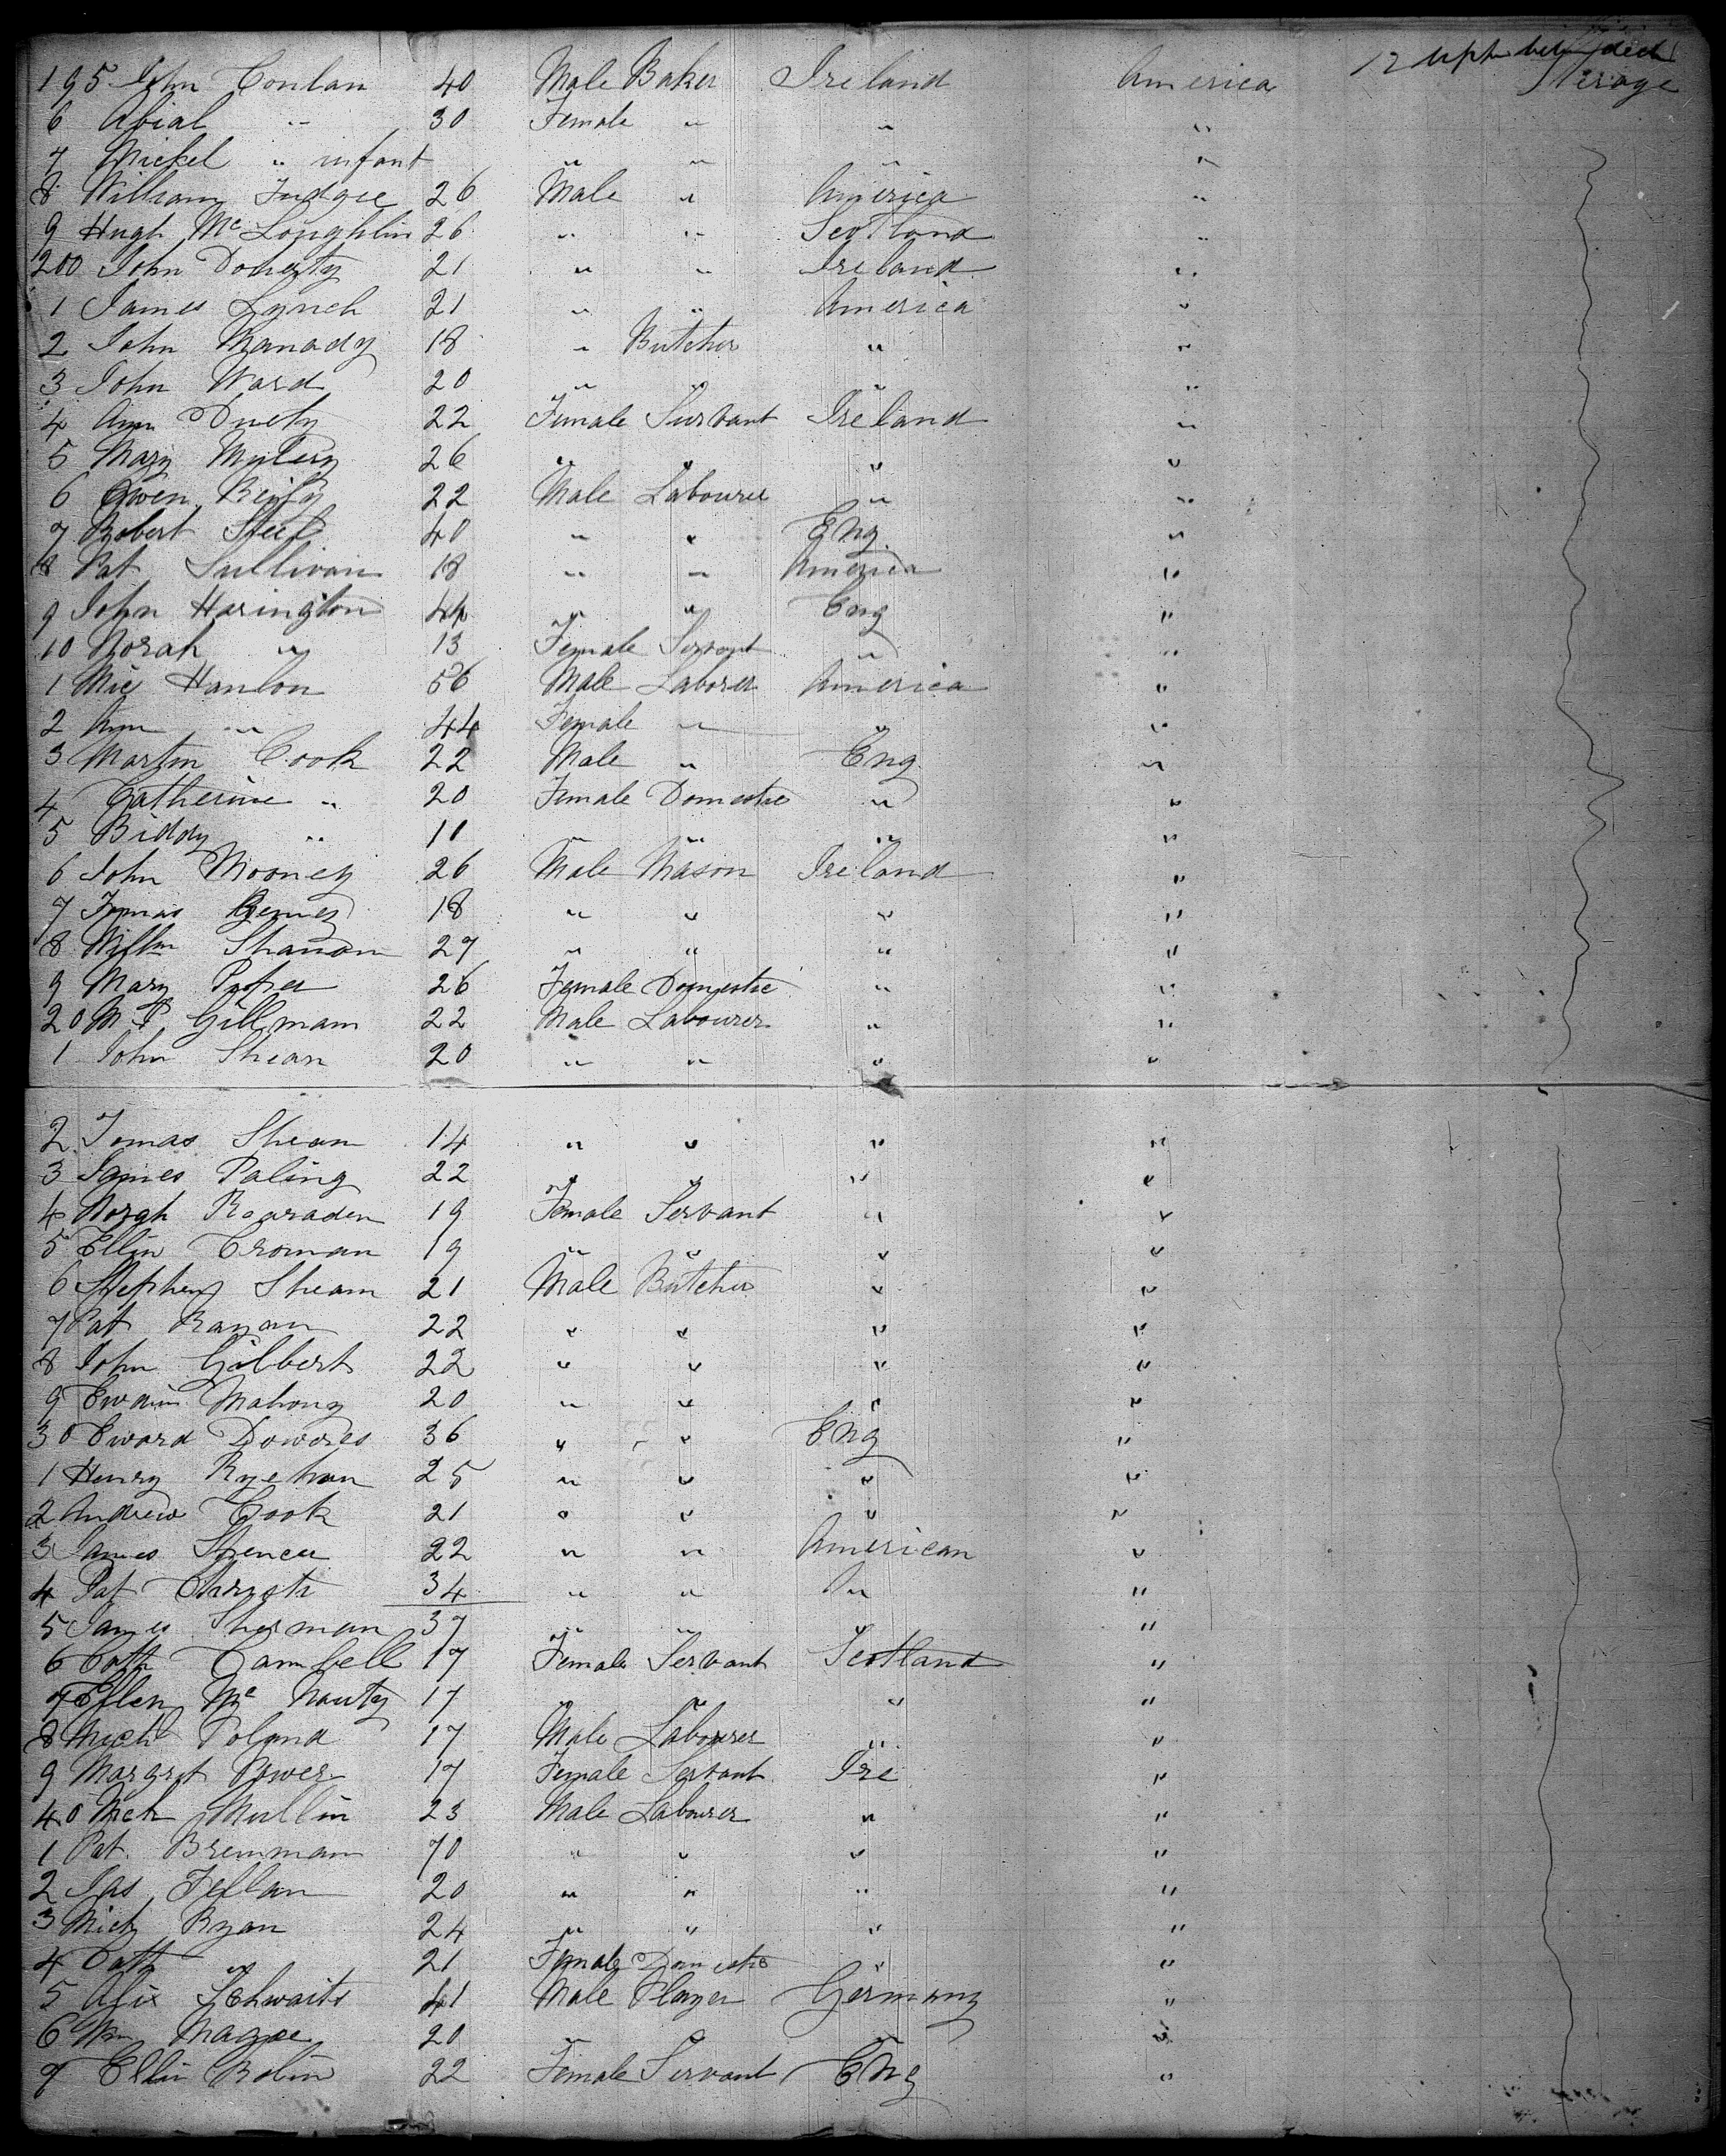 12 Upr betw deck
195 John Conlan 40 Male Baker Ireland America Sterage
6 Abial " 30 Female " " "
7 Mickel " infant " " " "
8 William Judgie 26 Male " America "
9 Hugh Mc Loughlin 26 " " Scotland "
200 John Doherty 21 " " Ireland "
1 James Lynch 21 " " America "
2 John Manady 18 " Butcher " "
3 John Ward 20 " " " "
4 Ann 22 Female Survant Ireland "
5 Mary 26 " " " "
6 Owen Reily 22 Male Labourer " "
7 Robert Steel 40 " " Eng. "
8 Pat Sullivan 18 " " America "
9 John Harington 44 " " Eng "
10 Norah " 13 Female Servant " "
1 Mic Hanlon 56 Male Laborer America "
2 Ann " 44 Female " " "
3 Martin Cook 22 Male " Eng "
4 Catherine " 20 Female Domestic " "
5 Biddy " 11 " " " "
6 John Mooney 26 Male Mason Ireland "
7 Tomas 18 " " " "
8 Willm Shanon 27 " " " "
9 Mary 26 Female Domestic " "
20 M P Gillmam 22 Male Labourer " "
1 John Shean 20 " " " "
2 Tomas Shean 14 " " " "
3 James Paling 22 " " " "
4 Norah 19 Female Servant " "
5 Ellin Croman 19 " " " "
6 Stephen Sheam 21 Male Butcher " "
7 Pat 22 " " " "
8 John Gilbert 22 " " " "
9 Mahony 20 " " " "
30 Eward 36 " " Eng "
1 Henry 25 " " " "
2 Andrew Cook 21 " " " "
3 James Spencer 22 " " American "
4 Pat 34 " " " "
5 James Sherman 37 " " " "
6 Cath Cambell 17 Female Servant Scotland "
7 Ellen Mc Nauty 17 " " " "
8 Mich Poland 17 Male Labourer " "
9 Margret Power 17 Female Servant Ire "
40 Mich Mullin 23 Male Labourer " "
1 Pat. Bremman 70 " " " "
2 Jas 20 " " " "
3 Mich Ryan 24 " " " "
4 Cath " 21 Female Domestic " "
5 Alix Schwaits 41 Male Player Germany "
6 Wm Magee 20 " " " "
7 Ellin Bolin 22 Female Servant Eng "